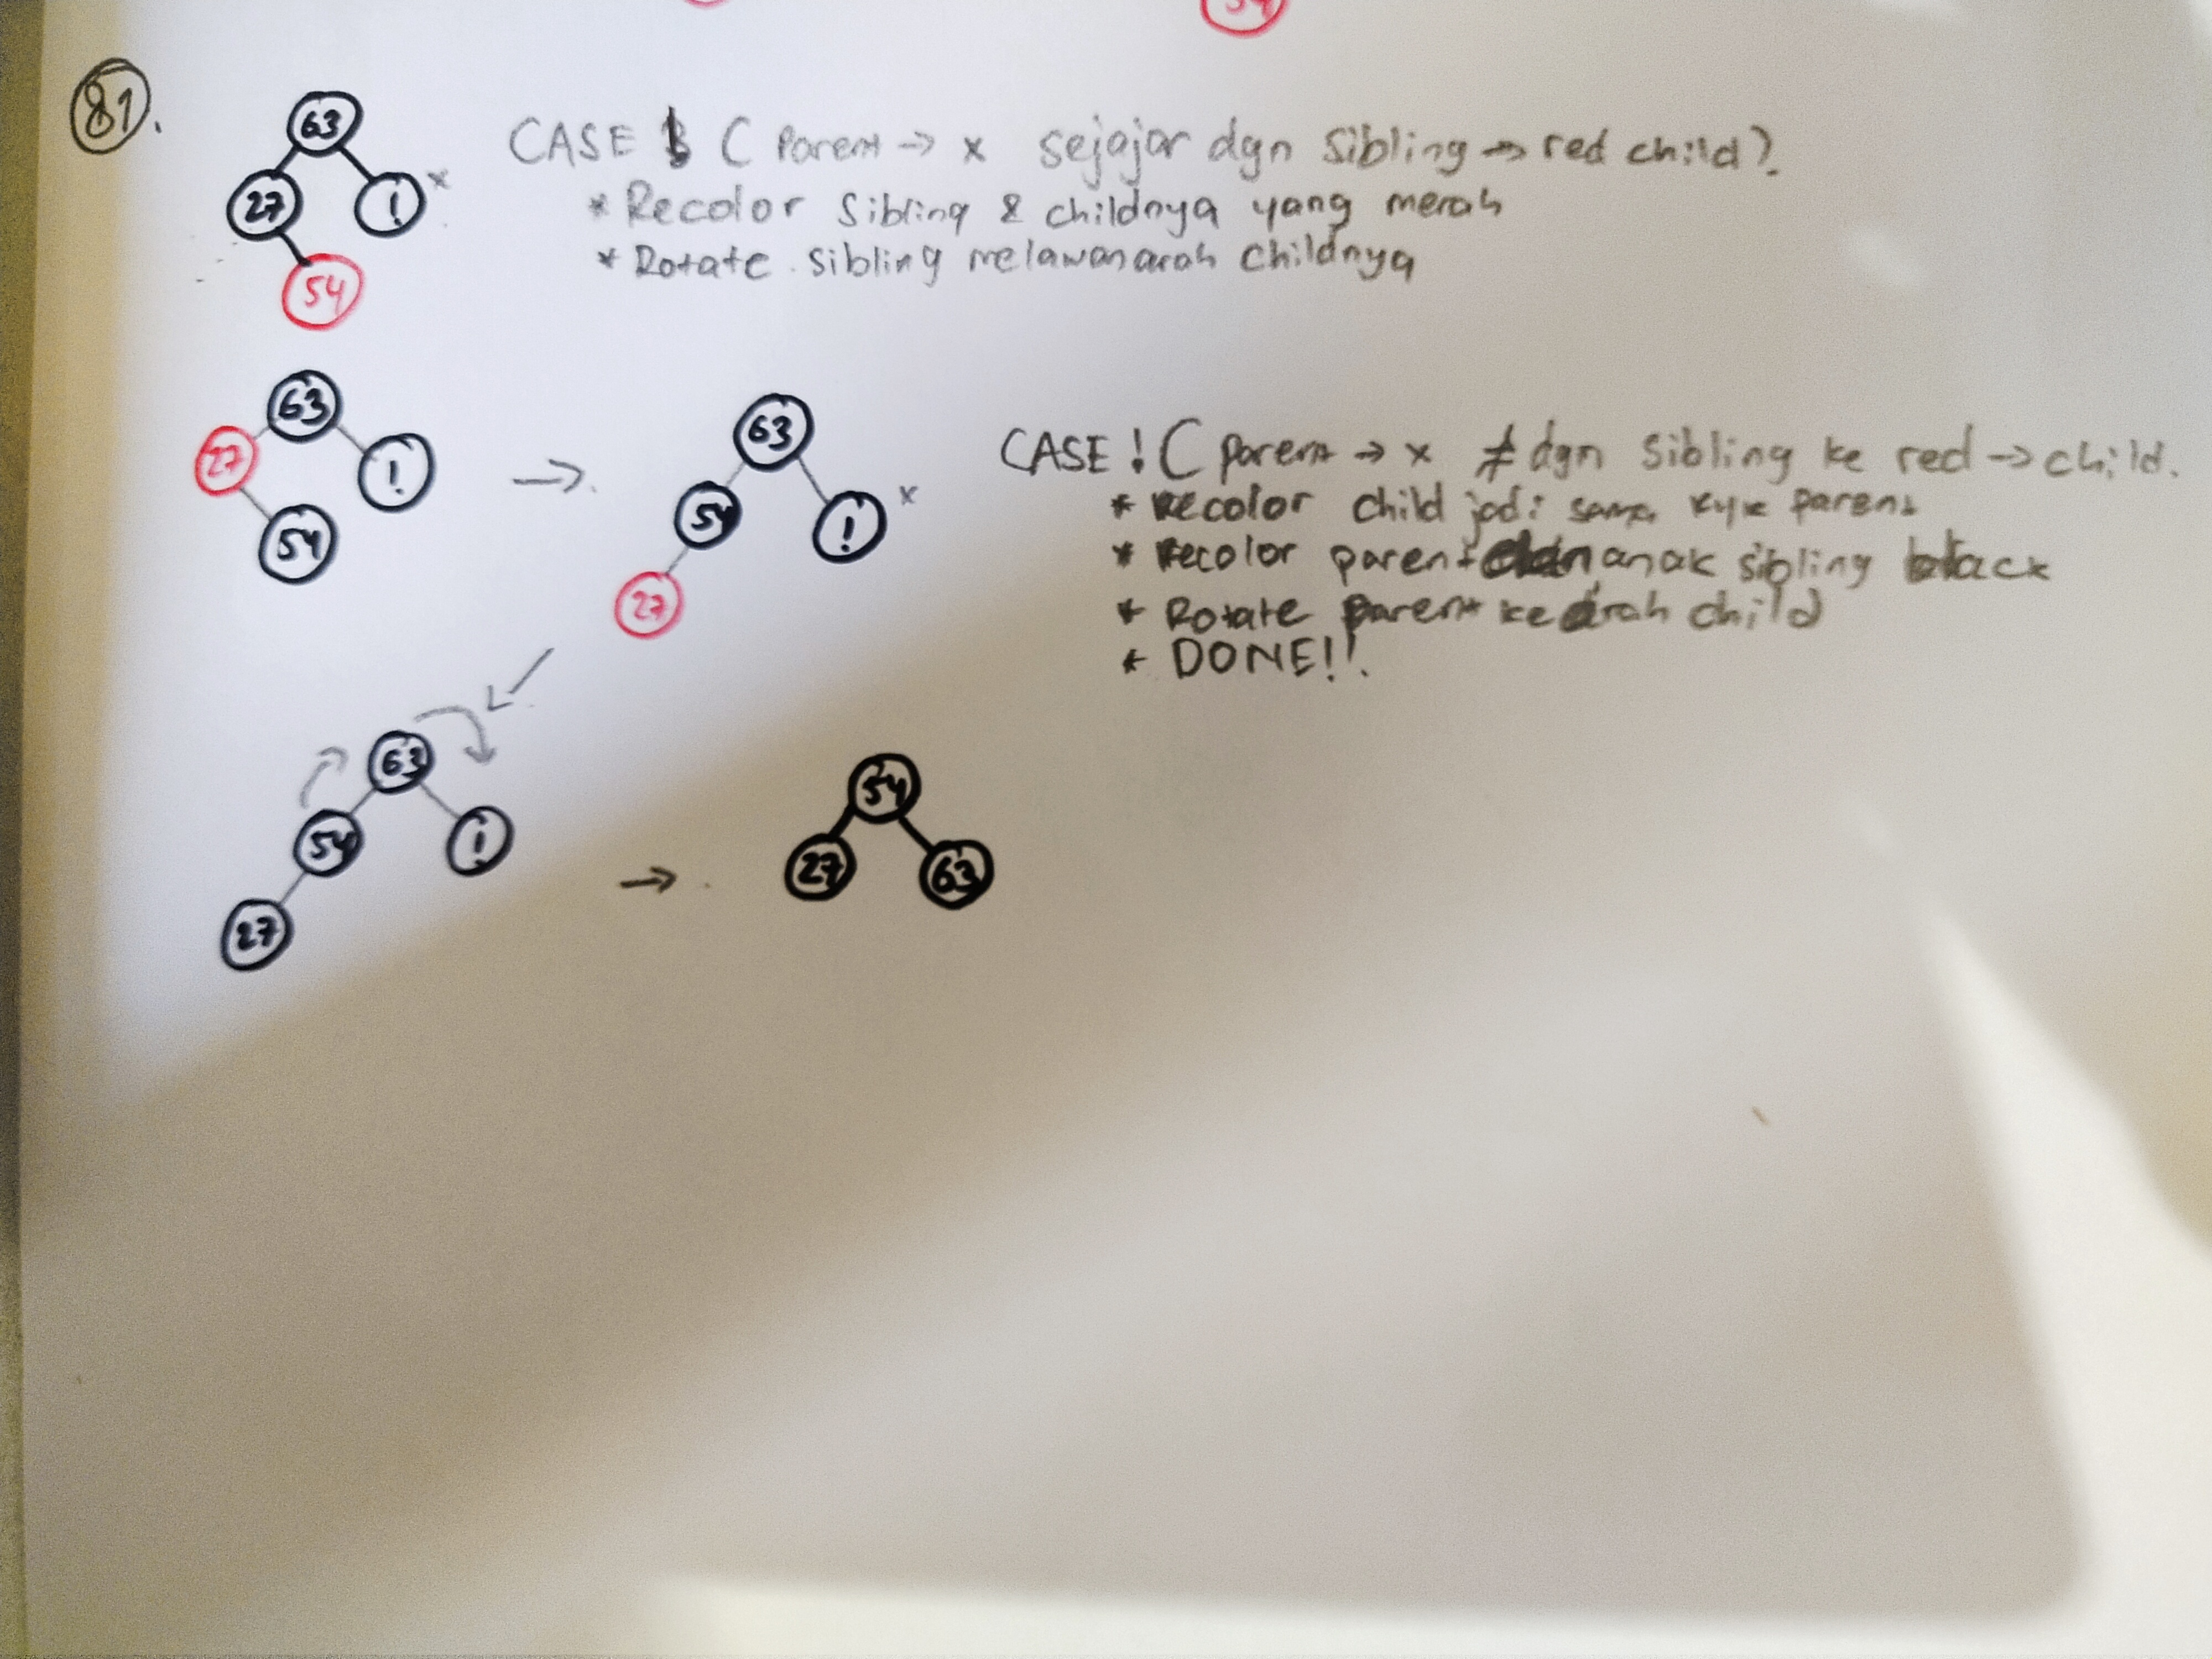 54
81.
63
27 ! x
54
CASE ( Parent → x sejajar dgn Sibling → red child).
* Recolor Sibling & childnya yang merah
* Rotate sibling melawan arah childnya
63
27 !
54
→
63
54 ! x
27
CASE ! ( parent → x ≠ dgn Sibling ke red → child.
* Recolor child jadi sama kyk parent
* Recolor parent dan anak sibling black
* Rotate Parent ke arah child
* DONE!!
63
54 !
27
→
54
27 63